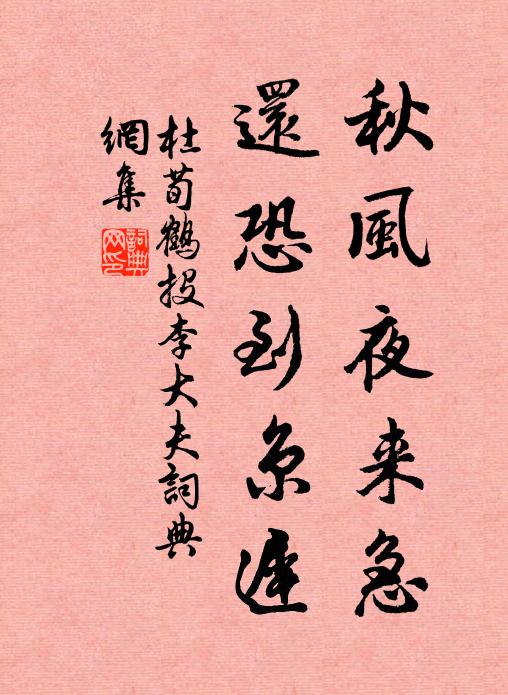 秋風夜来急
還恐到京遲
杜荀鶴投李大夫詞典
網集
詞典
网印